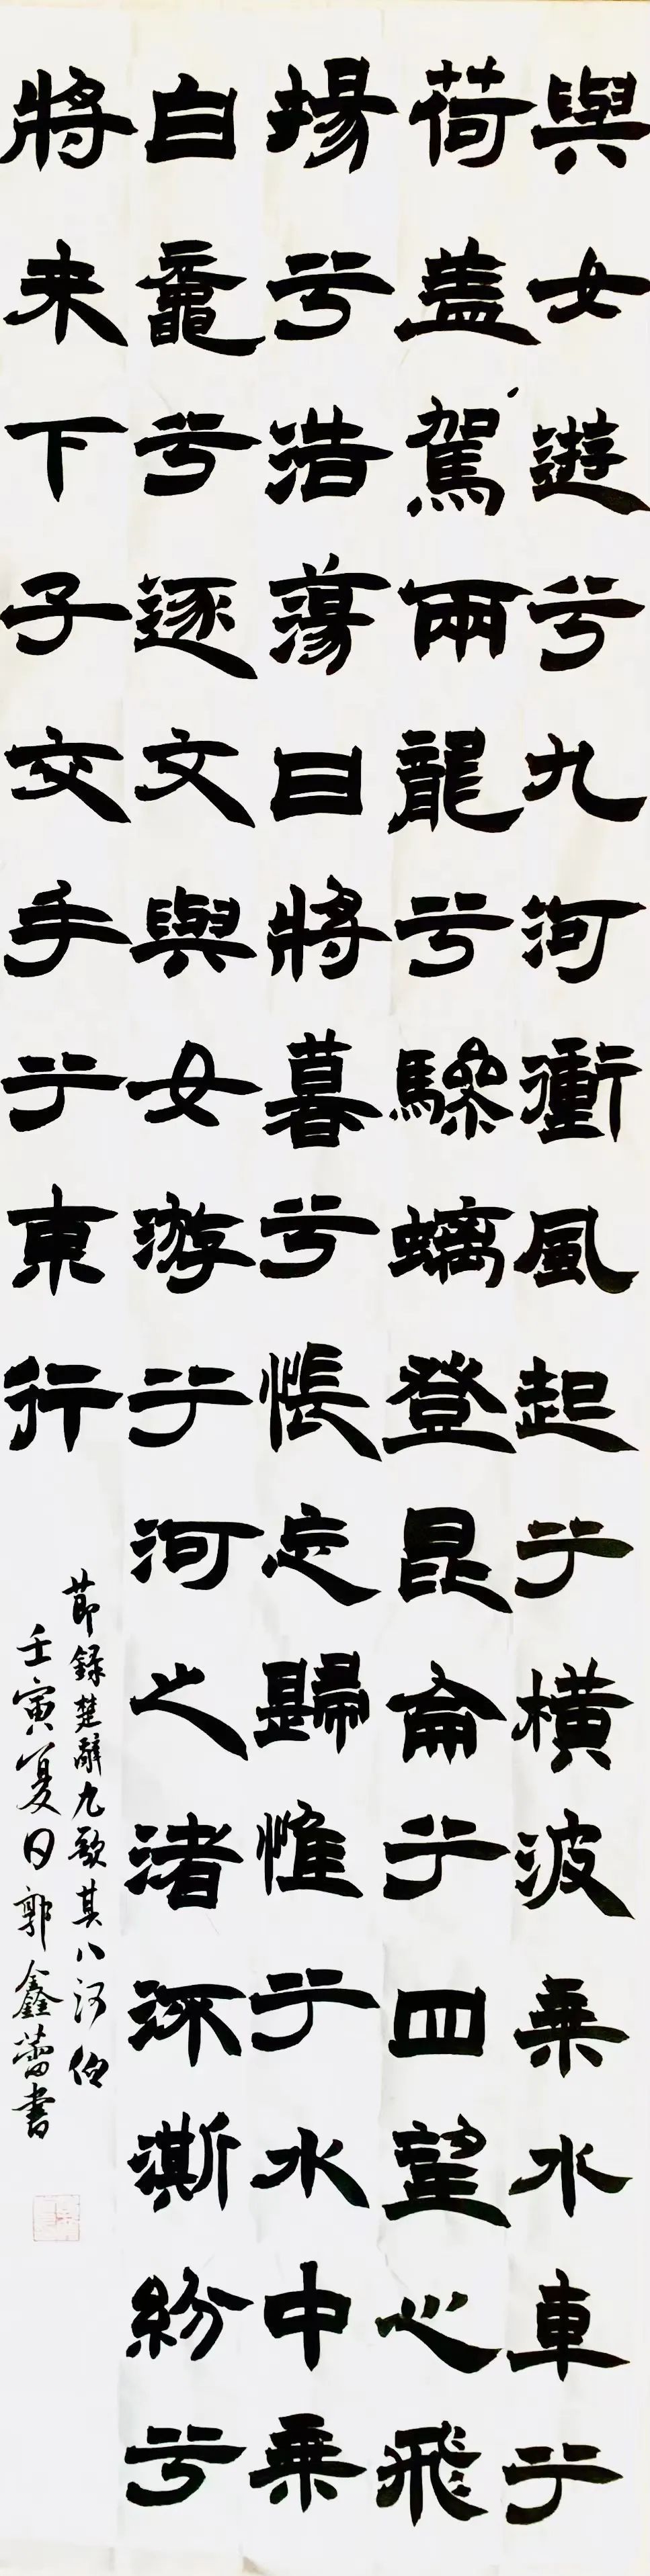 與女遊兮九河衝風起于橫波乘水車于
荷蓋駕兩龍兮驂螭登昆侖于四望心飛
揚兮浩蕩日將暮兮悵忘歸惟于水中乘
白黿兮逐文與女游于河之渚流澌紛兮
將来下子交手于東行
節録楚辭九歌其八河伯
壬寅夏日郭鑫蕾書